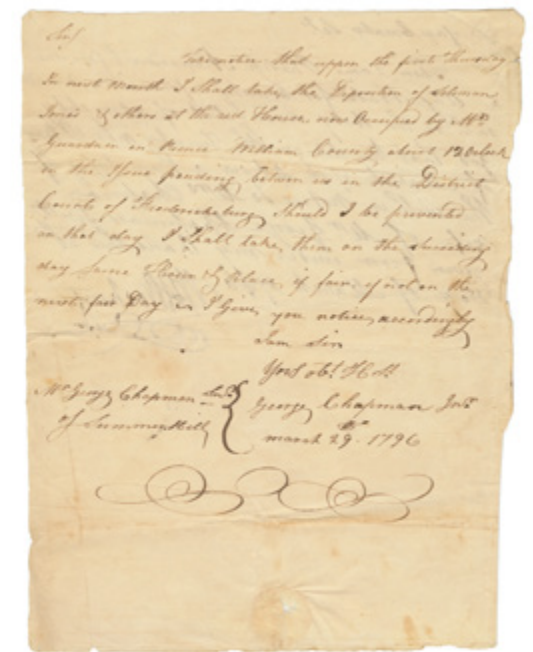 Sir
Take notice that upon the first Thursday
In next Month I Shall take the Deposition of Soloman
Jones & others at the red House now Occupied by Mrs
Guardner in Prince William County about 12 Oclock
in the Ishue pending between us in the District
Courte of Fredericksburg, Should I be prevented
on that day I Shall take them on the Suceeding
day Same Hour & Place, if fair, if not on the
next fair Day I Give you notice accordingly
I am Sir
Your obt
George Chapman Junr
march 29. 1796
Mr George Chapman Senr
of Summer Hill